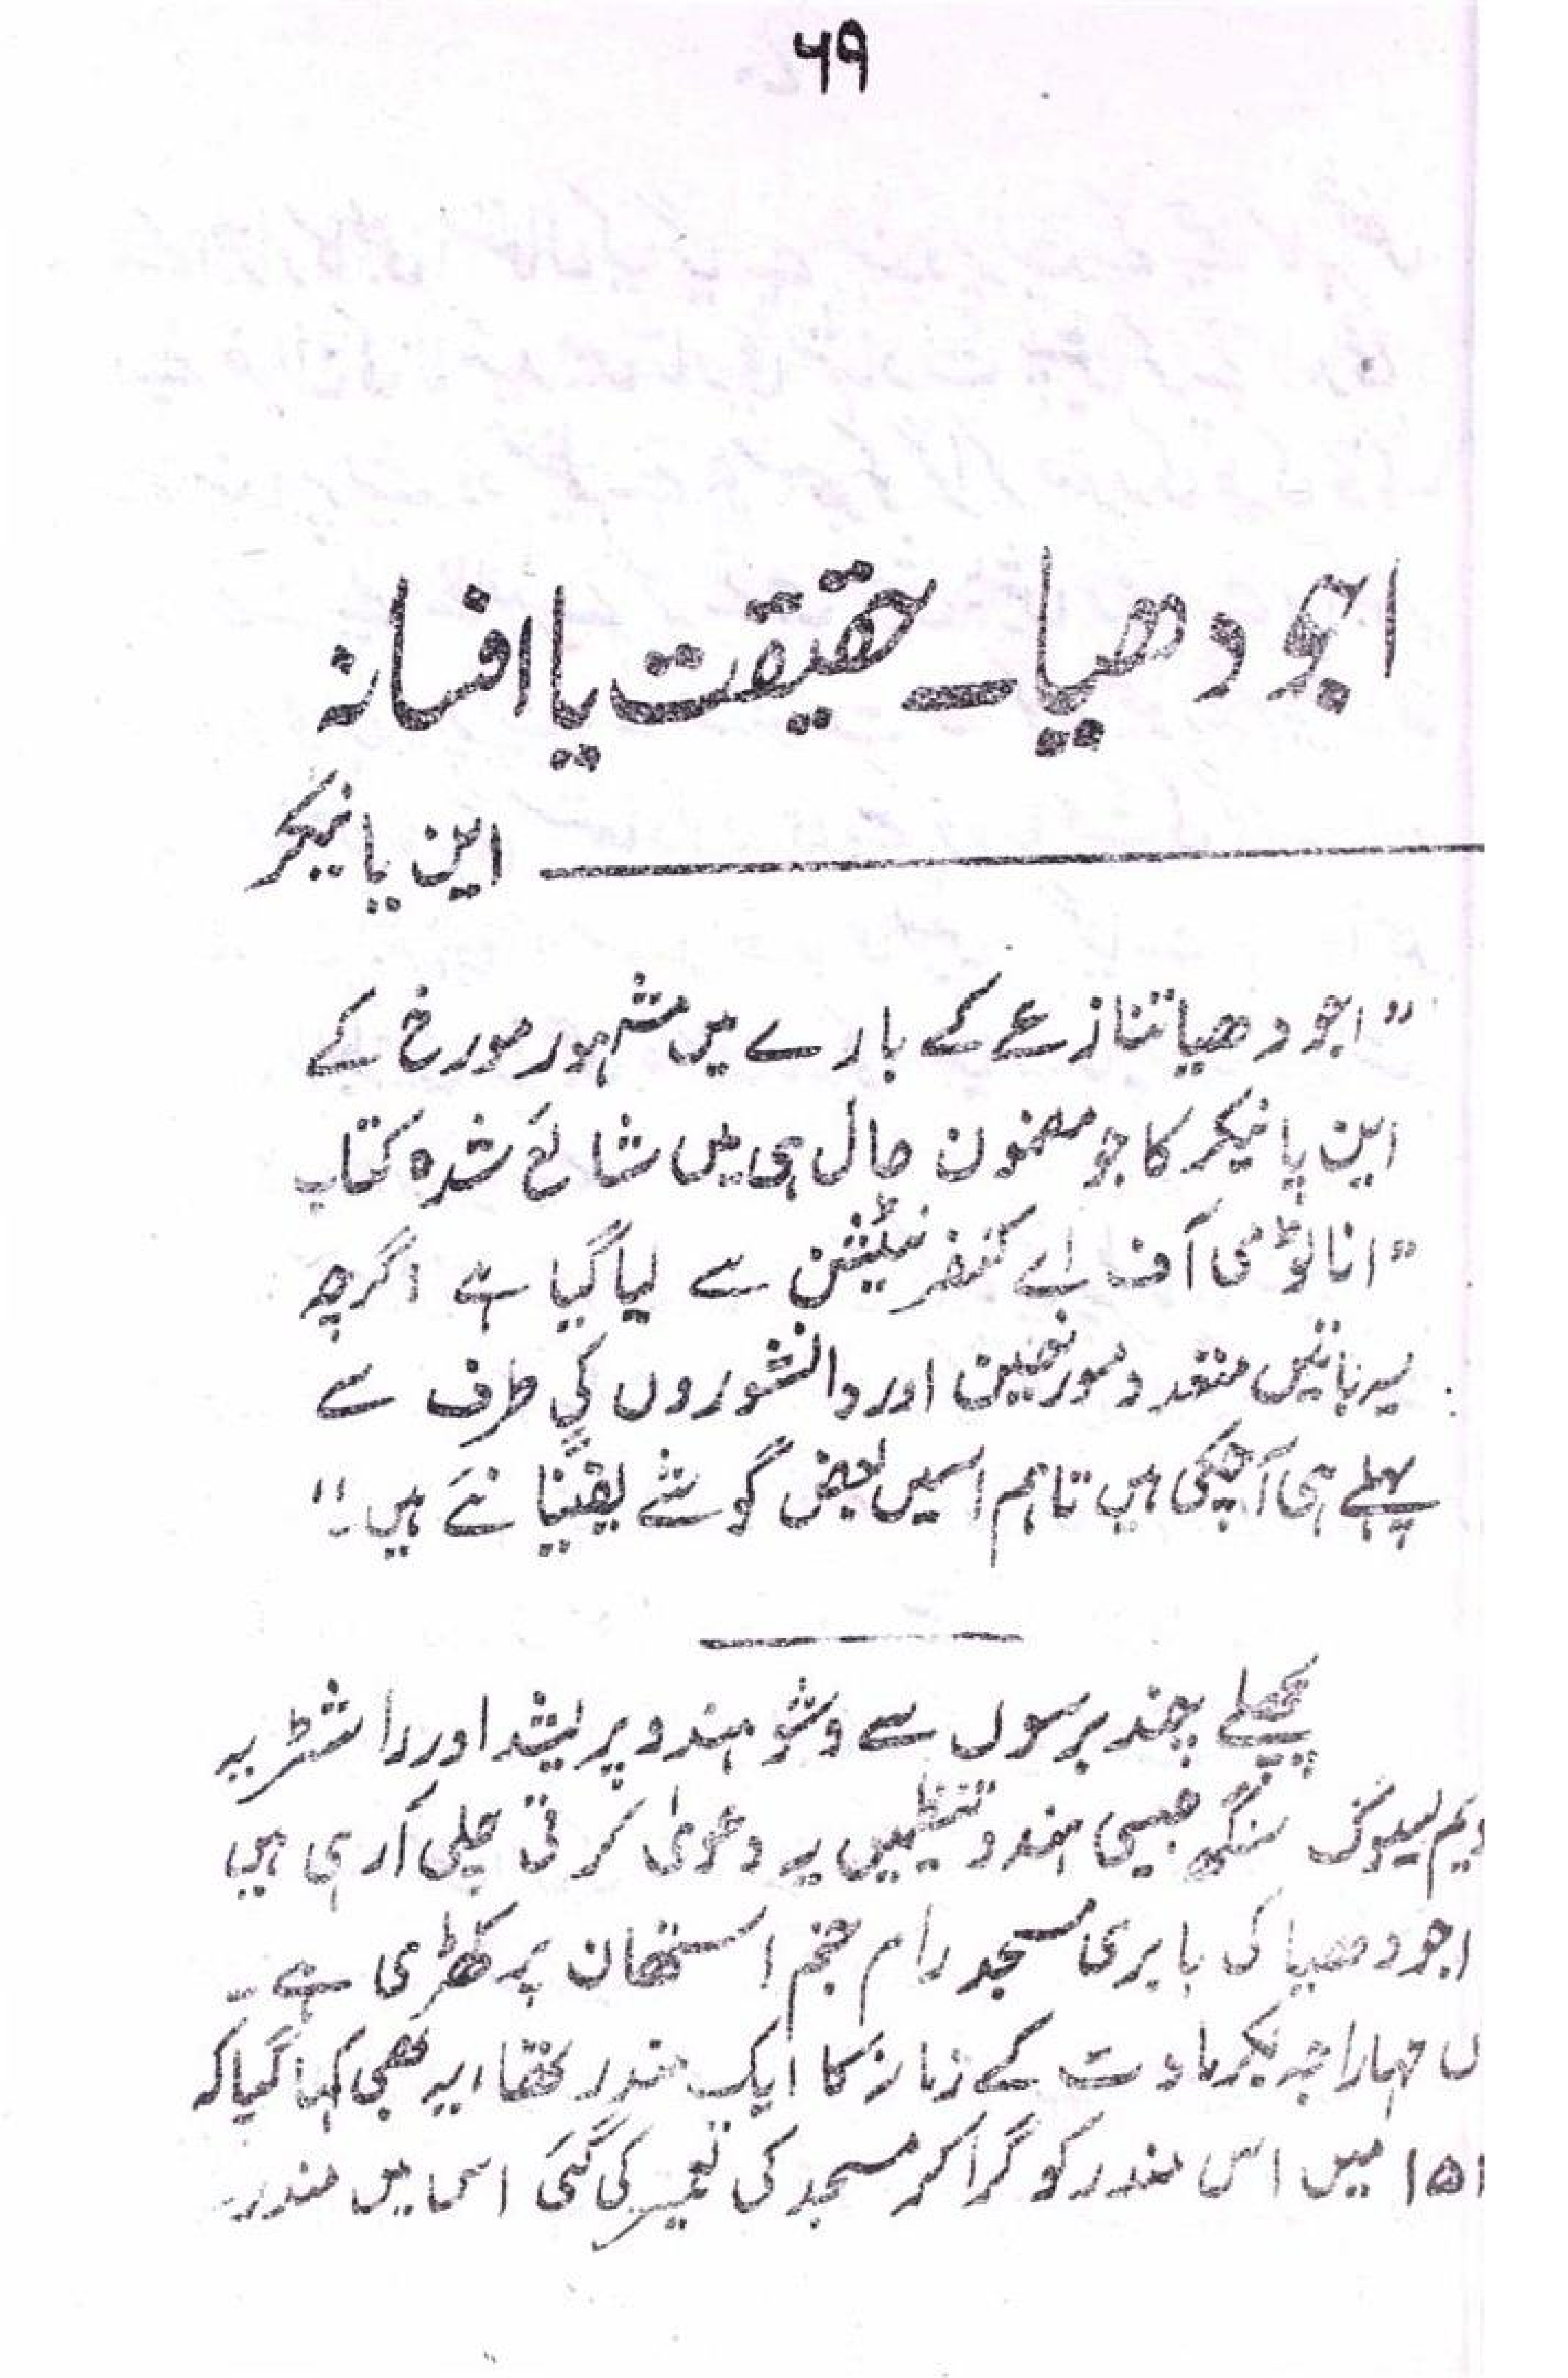 ۶۹
اجودھیا۔ حقیقت یا افسانہ
این پانیکر
"اجودھیا تنازعے کے بارے میں مشہور مورخ کے
این پانیکر کا جو مضمون حال ہی میں شائع شدہ کتاب
"اناٹومی آف اے کنفرنٹیشن سے لیا گیا ہے اگرچہ
یہ باتیں متعدد مورخین اور دانشوروں کی طرف سے
پہلے ہی آچکی ہیں تاہم اسمیں بعض گوشے یقیناً نئے ہیں۔"
پچھلے چند برسوں سے وشو ہندو پریشد اور راشٹریہ
سیوک سنگھ جیسی ہندو تنظیمیں یہ دعویٰ کرتی چلی آرہی ہیں
اجودھیا کی بابری مسجد رام جنم استھان پر کھڑی ہے۔
ں مہاراجہ بکرمادت کے زمانہ کا ایک مندر تھا، یہ بھی کہا گیا کہ
میں اس مندر کو گرا کر مسجد کی تعمیر کی گئی اسی میں مندر